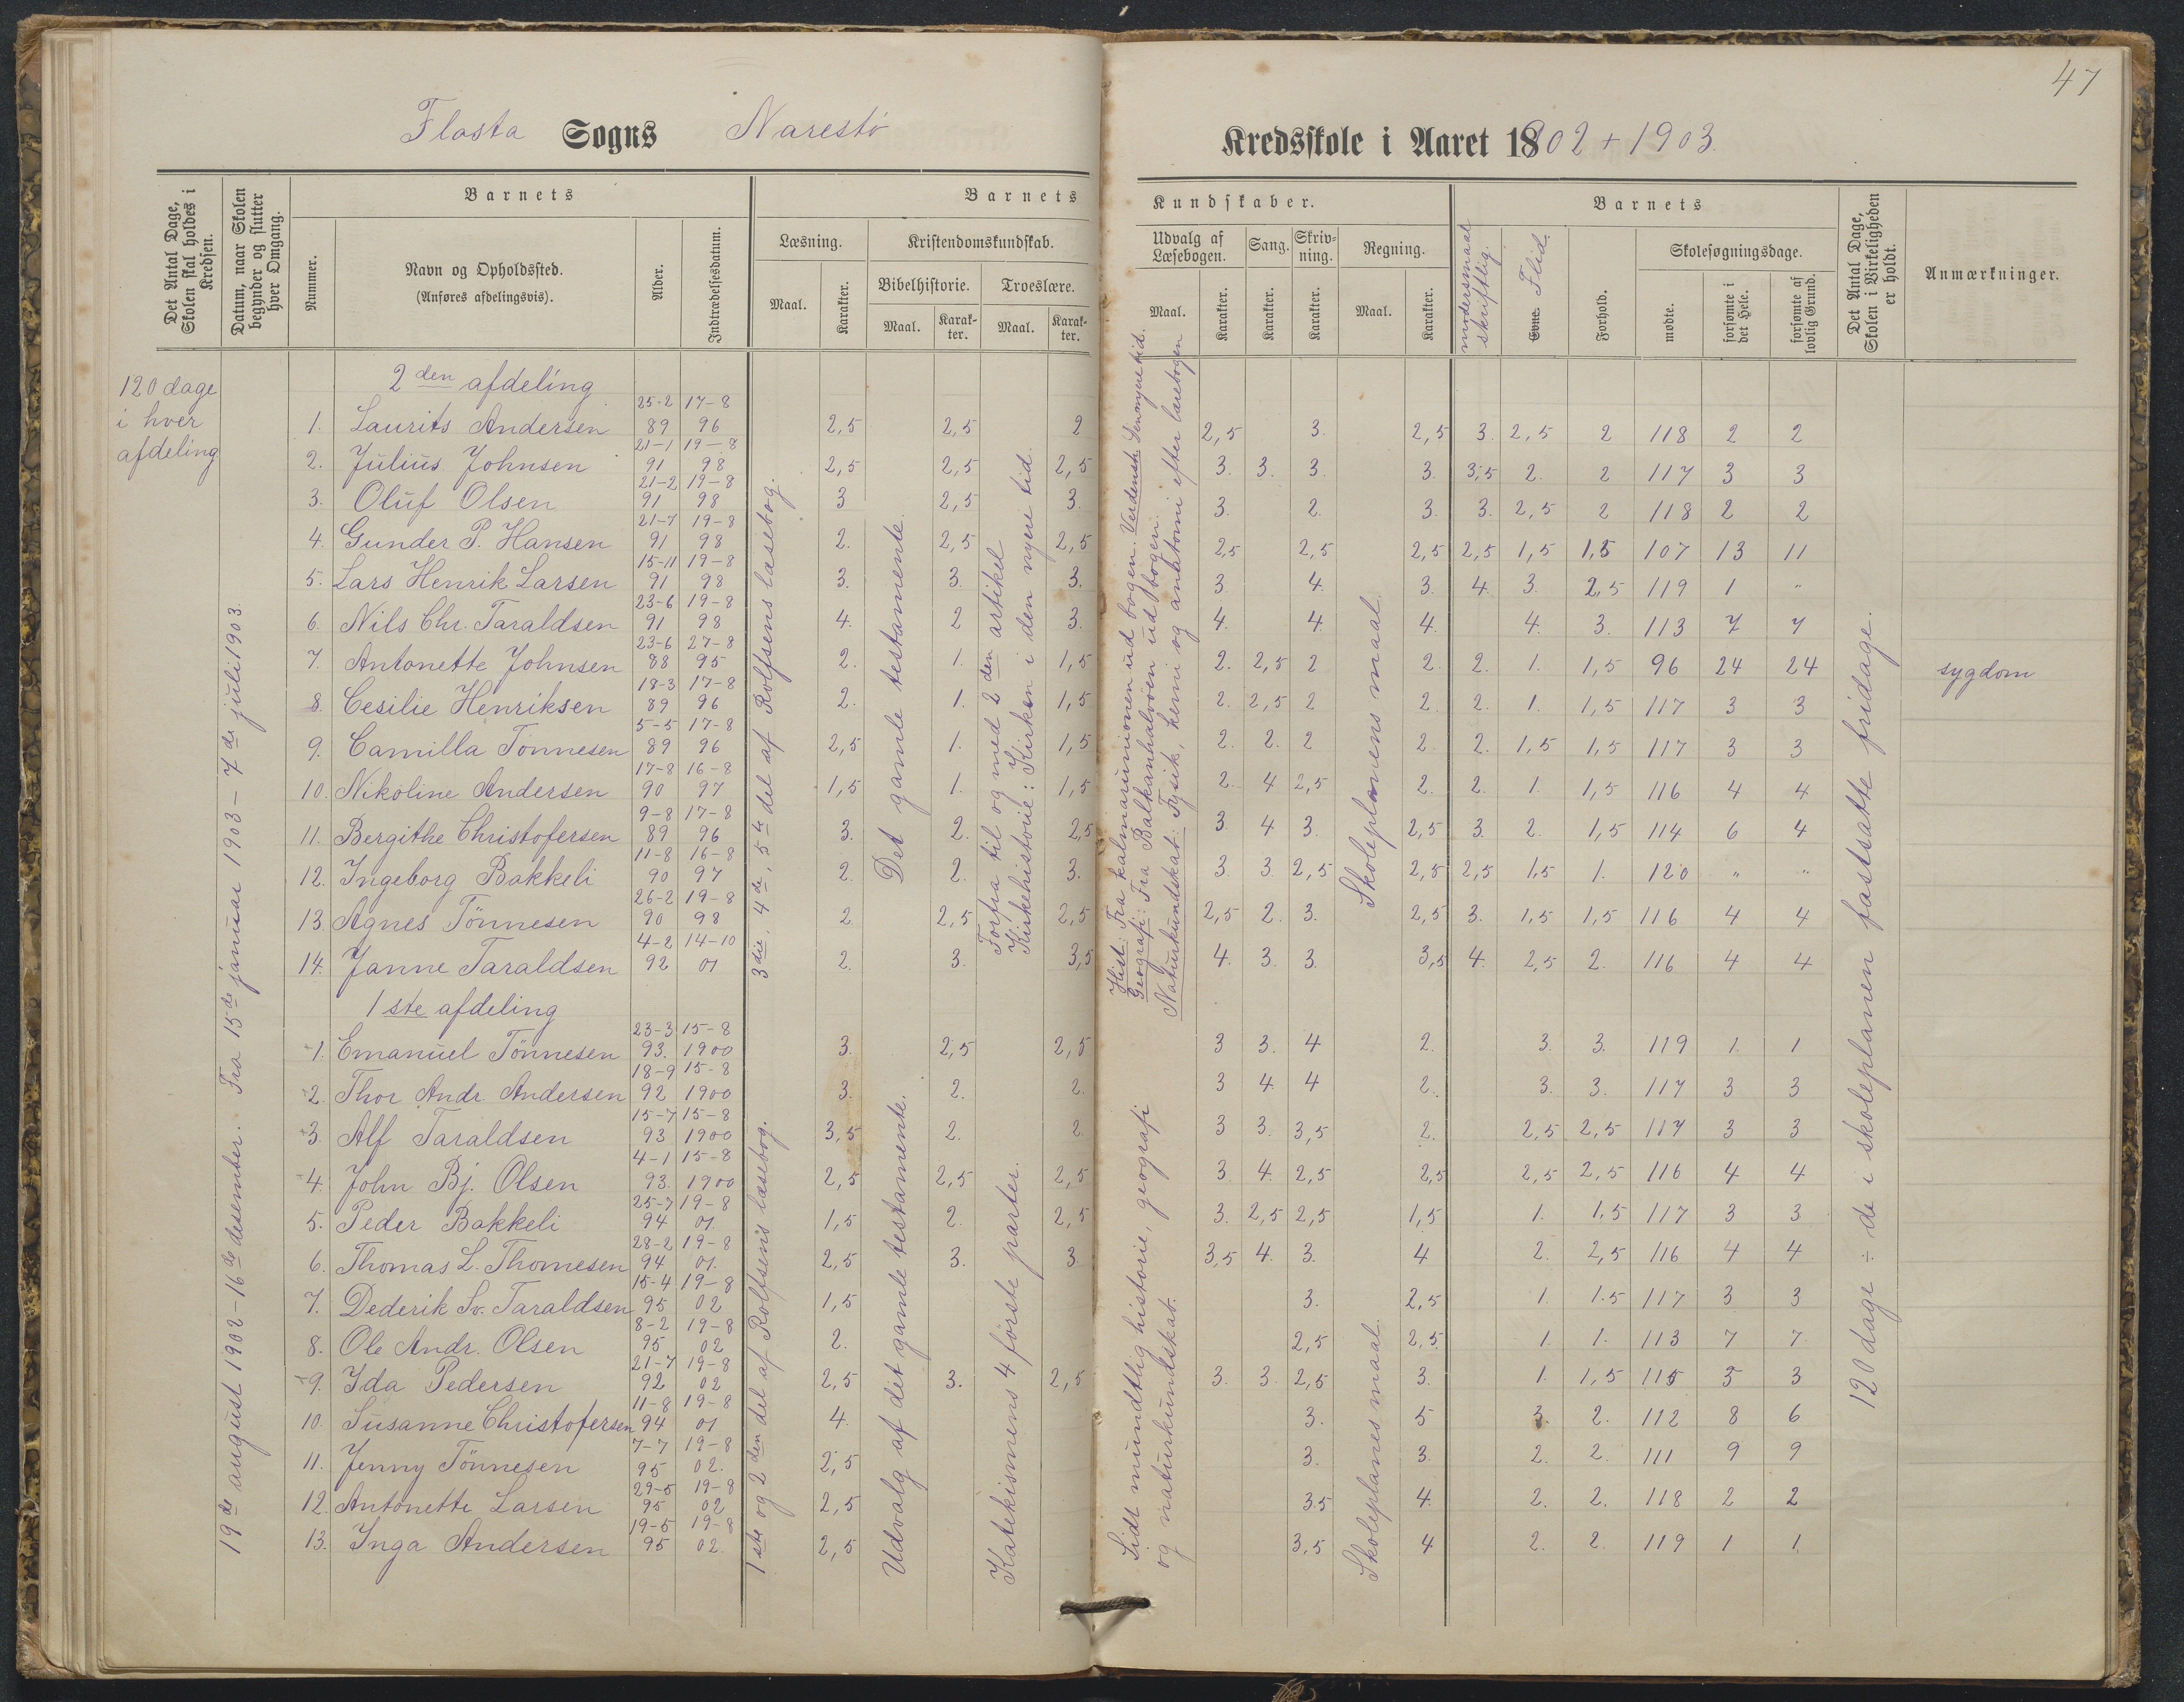 47
Flosta Sogns Narestö Kredsskole i Aaret 1802 + 1903.
Det Antal Dage, Skolen skal holdes i Kredsen.
Datum, naar Skolen begynder og slutter hver Omgang.
Barnets
Nummer.
Navn og Opholdssted.
(Anføres afdelingsvis).
Alder.
Indtrædelsesdatum.
Barnets Kundskaber.
Læsning.
Maal. Karakter.
Kristendomskundskab.
Bibelhistorie. Troeslære.
Maal. Karakter. Maal. Karakter.
Udvalg af Læsebogen. Sang. Skrivning. Regning.
Maal. Karakter. Karakter. Karakter. Maal. Karakter.
modersmaal skriftlig.
Barnets
Evne. Flid.
Forhold.
Skolesøgningsdage.
mødte. forsømte i det Hele. forsømte af lovlig Grund.
Det Antal Dage, Skolen i Virkeligheden er holdt.
Anmærkninger.
120 dage
i hver
afdeling
19de august 1902 - 16de desember. Fra 15de januar 1903 - 7de juli 1903.
2den afdeling
1. Laurits Andersen 25-2 89 17-8 96 2,5 2,5 2 2,5 3. 2,5 3. 2,5 2 118 2 2
2. Julius Johnsen 21-1 91 19-8 98 2,5 2,5 2,5 3. 3. 3. 3. 3,5 2. 2 117 3 3
3. Oluf Olsen 21-2 91 19-8 98 3 2,5 3. 3. 2. 3. 3. 2,5 2 118 2 2
4. Gunder P. Hansen 21-7 91 19-8 98 2. 2,5 2,5 2,5 2,5 2,5 2,5 1,5 1,5 107 13 11
5. Lars Henrik Larsen 15-11 91 19-8 98 3. 3. 3. 3. 4. 3. 4. 3. 2,5 119 1 "
6. Nils Chr. Taraldsen 23-6 91 19-8 98 4. 2 3. 4. 4. 4. 4. 3. 113 7 7
7. Antonette Johnsen 23-6 88 27-8 95 2. 1. 1,5 2. 2,5 2 2. 2. 1. 1,5 96 24 24 sygdom
8. Cesilie Henriksen 18-3 89 17-8 96 2. 1. 1,5 2. 2,5 2 2. 2. 1. 1,5 117 3 3
9. Camilla Tönnesen 5-5 89 17-8 96 2,5 1. 1,5 2. 2. 2 2. 2. 1,5 1,5 117 3 3
10. Nikoline Andersen 17-8 90 16-8 97 1,5 1. 1,5 2. 4 2,5 2. 2. 1. 1,5 116 4 4
11. Bergithe Christofersen 9-8 89 17-8 96 3. 2. 2,5 3. 4. 3. 2,5 3. 2. 1,5 114 6 4
12. Ingeborg Bakkeli 11-8 90 16-8 97 2. 2. 3. 3. 3. 2,5 2,5 2,5 1,5 1. 120 " "
13. Agnes Tönnesen 26-2 90 19-8 98 2. 2,5 2,5 2,5 2. 3. 2,5 3. 1,5 1,5 116 4 4
14. Janne Taraldsen 4-2 92 14-10 01 2. 3. 3,5 4. 3. 3. 3,5 4. 2,5 2. 116 4 4
3die, 4de, 5te del af Rolfsens læsebog.
Det gamle testamente.
Forfra til og med 2den artikel
Kirkehistorie: Kirken i den nyere tid.
Hist: Fra kalmarunionen ud bogen. Verdensh.
Geografi: Fra Balkanhalvöen ud bogen.
Naturkundskab: Fysik, kemi og anatomi efter lærebogen
Skoleplanens maal.
1ste afdeling
1. Emanuel Tönnesen 23-3 93. 15-8 1900 3. 2,5 2,5 3 3. 4 2. 3. 3. 119 1. 1
2. Thor Andr. Andersen 18-9 92 15-8 1900 3. 2. 2. 3 4 4 2. 3. 3. 117 3 3
3. Alf Taraldsen 15-7 93 15-8 1900 3,5 2. 2. 3 3. 3,5 2. 2,5 2,5 117 3 3
4. John Bj. Olsen 4-1 93. 15-8 1900 2,5 2,5 2,5 3. 4. 2,5 2,5 2,5 2,5 116 4 4
5. Peder Bakkeli 25-7 94 19-8 01. 1,5 2. 2,5 3. 2,5 2,5 1,5 1. 1,5 117 3 3
6. Thomas L. Thomesen 28-2 94 19-8 01. 2,5 3. 3. 3,5 4. 3. 4 2. 2,5 116 4 4
7. Dederik Sv. Taraldsen 15-4 95 19-8 02 1,5 3. 2,5 1 1.5 117 3 3
8. Ole Andr. Olsen 8-2 95 19-8 02 2. 2,5 2,5. 1 1. 113 7 7
9. Ida Pedersen 21-7 92 19-8 02 2,5 3. 2,5 3. 3. 2,5 3. 1. 1,5 115 5 3
10. Susanne Christofersen 11-8 94 19-8 01 4. 3. 5 3. 2. 112 8 6
11. Jenny Tönnesen 7-7 95 19-8 02. 2,5 3. 3. 2. 2. 111 9 9
12. Antonette Larsen 29-5 95 19-8 02 2,5 3.5 4. 2. 2. 118 2 2
13. Inga Andersen 19-5 95 19-8 02. 2,5 3,5 4 2. 2. 119 1 1.
1ste og 2den del af Rolfsens læsebog.
Udvalg af det gamle testamente.
Katekismens 4 förste parter.
Lidt mundtlig historie, geografi
og naturkundskab.
Skoleplanes maal.
120 dage ÷ de i skoleplanen fastsatte fridage.